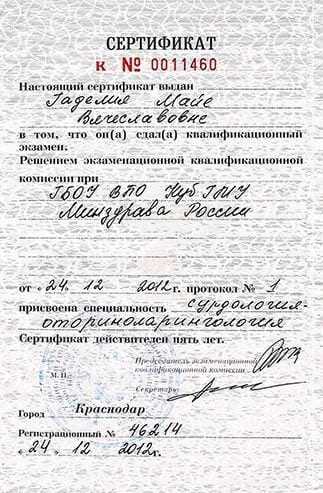 СЕРТИФИКАТ
К № 0011460
Настоящий сертификат выдан
Гаделия Майе
Вячеславовне
в том, что он(а) сдал(а) квалификационный
экзамен.
Решением экзаменационной квалификационной
комиссии при
ГБОУ ВПО КубГМУ
Минздрава России
от «24» 12 2012 г. протокол № 1
присвоена специальность сурдология-
оториноларингология
Сертификат действителен пять лет.
Председатель экзаменационной
квалификационной комиссии
М. П.
Секретарь
Город Краснодар
Регистрационный № 46214
«24» 12 2012г.